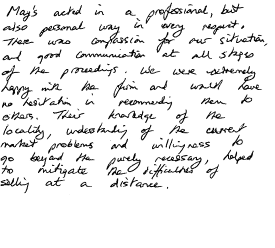 May's acted in a professional, but
also personal way in every respect.
There was compassion for our situation,
and good communication at all stages
of the proceedings. We were extremely
happy with the firm and would have
no hesitation in recommending them to
others. Their knowledge of the
locality, understanding of the current
market problems and willingness to
go beyond the purely necessary, helped
to mitigate the difficulties of
selling at a distance.